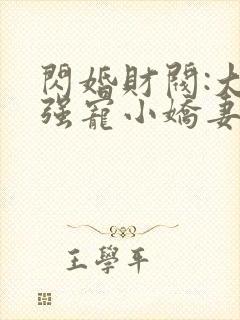 閃婚財閥:大
强寵小嬌妻
王學平